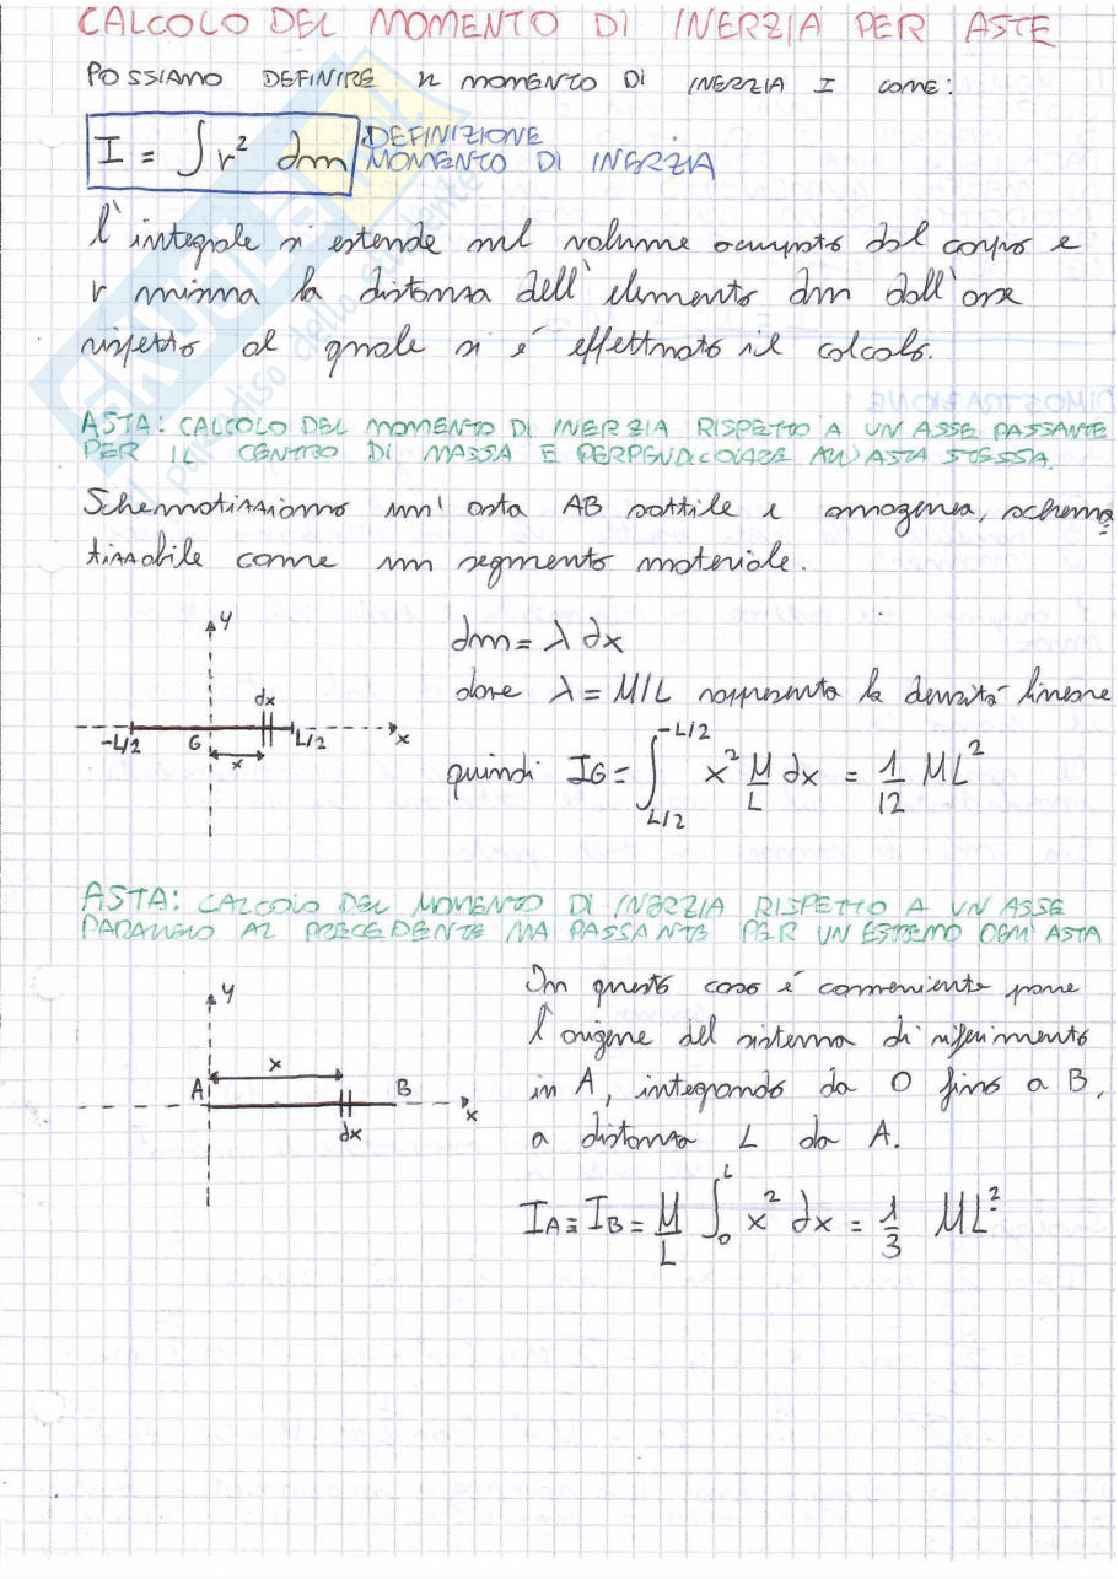 CALCOLO DEL MOMENTO DI INERZIA PER ASTE
POSSIAMO DEFINIRE IL MOMENTO DI INERZIA I COME:
I = ∫ r² dm DEFINIZIONE
MOMENTO DI INERZIA
l'integrale si estende sul volume occupato dal corpo e
r misura la distanza dell'elemento dm dall'asse
rispetto al quale si é effettuato il calcolo.
ASTA: CALCOLO DEL MOMENTO DI INERZIA RISPETTO A UN ASSE PASSANTE
PER IL CENTRO DI MASSA E PERPENDICOLARE ALL'ASTA STESSA.
Schematizziamo un'asta AB sottile e omogenea, schema
tizzabile come un segmento materiale.
y
dx
-L/2 G L/2 x
x
dm = λ dx
dove λ = M/L rappresenta la densitá lineare
quindi IG = ∫_{L/2}^{-L/2} x² M/L dx = 1/12 ML²
ASTA: CALCOLO DEL MOMENTO DI INERZIA RISPETTO A UN ASSE
PARALLELO AL PRECEDENTE MA PASSANTE PER UN ESTREMO DELL'ASTA
y
x
A B
x
dx
In questo caso é conveniente porre
l'origine del sistema di riferimento
in A, integrando da 0 fino a B,
a distanza L da A.
IA = IB = M/L ∫_{0}^{L} x² dx = 1/3 ML²
SKUOLA
il paradiso dello studente